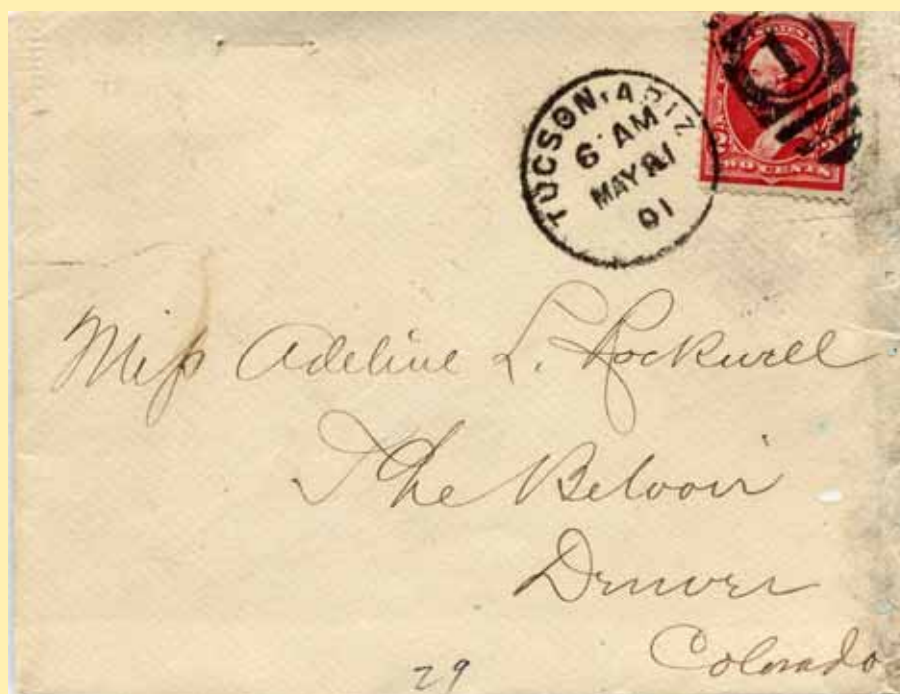 TUCSON, ARIZ
6 AM
MAY
01
1
2
TWO CENTS
Miss Adeline L. Rockwell
The Belvoir
Denver
Colorado
29